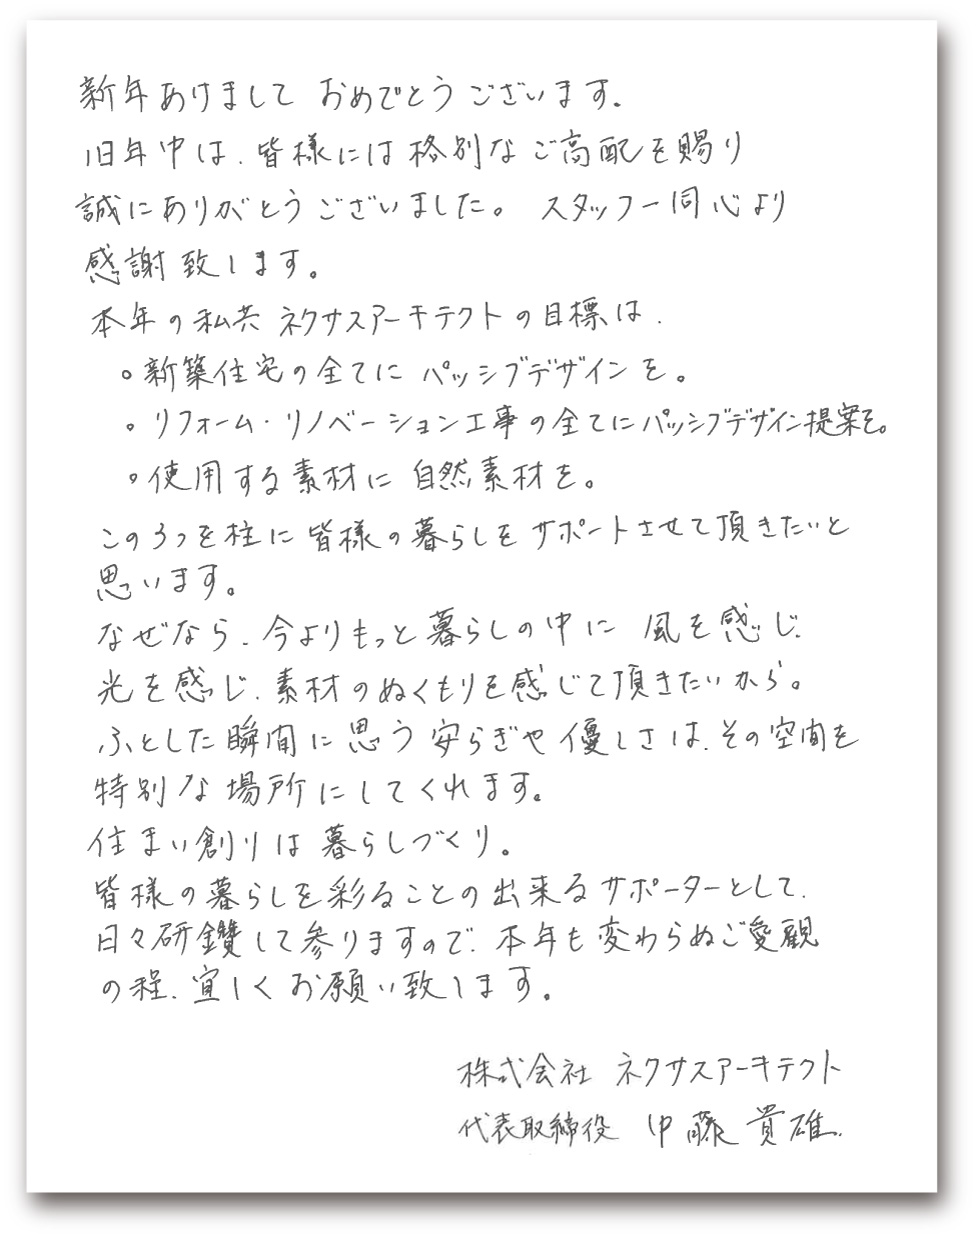 新年あけまして おめでとうございます。
旧年中は、皆様には格別なご高配を賜り
誠にありがとうございました。 スタッフ一同心より
感謝致します。
本年の私共 ネクサスアーキテクトの目標は、
。新築住宅の全てに パッシブデザインを。
。リフォーム・リノベーション工事の全てにパッシブデザイン提案を。
。使用する素材に 自然素材を。
この3つを柱に皆様の暮らしをサポートさせて頂きたいと
思います。
なぜなら、今よりもっと暮らしの中に 風を感じ、
光を感じ、素材のぬくもりを感じて頂きたいから。
ふとした瞬間に思う安らぎや優しさは、その空間を
特別な場所にしてくれます。
住まい創りは暮らしづくり。
皆様の暮らしを彩ることの出来るサポーターとして、
日々研鑽して参りますので、本年も変わらぬご愛顧
の程、宜しくお願い致します。
株式会社 ネクサスアーキテクト
代表取締役 中藤 貴雄